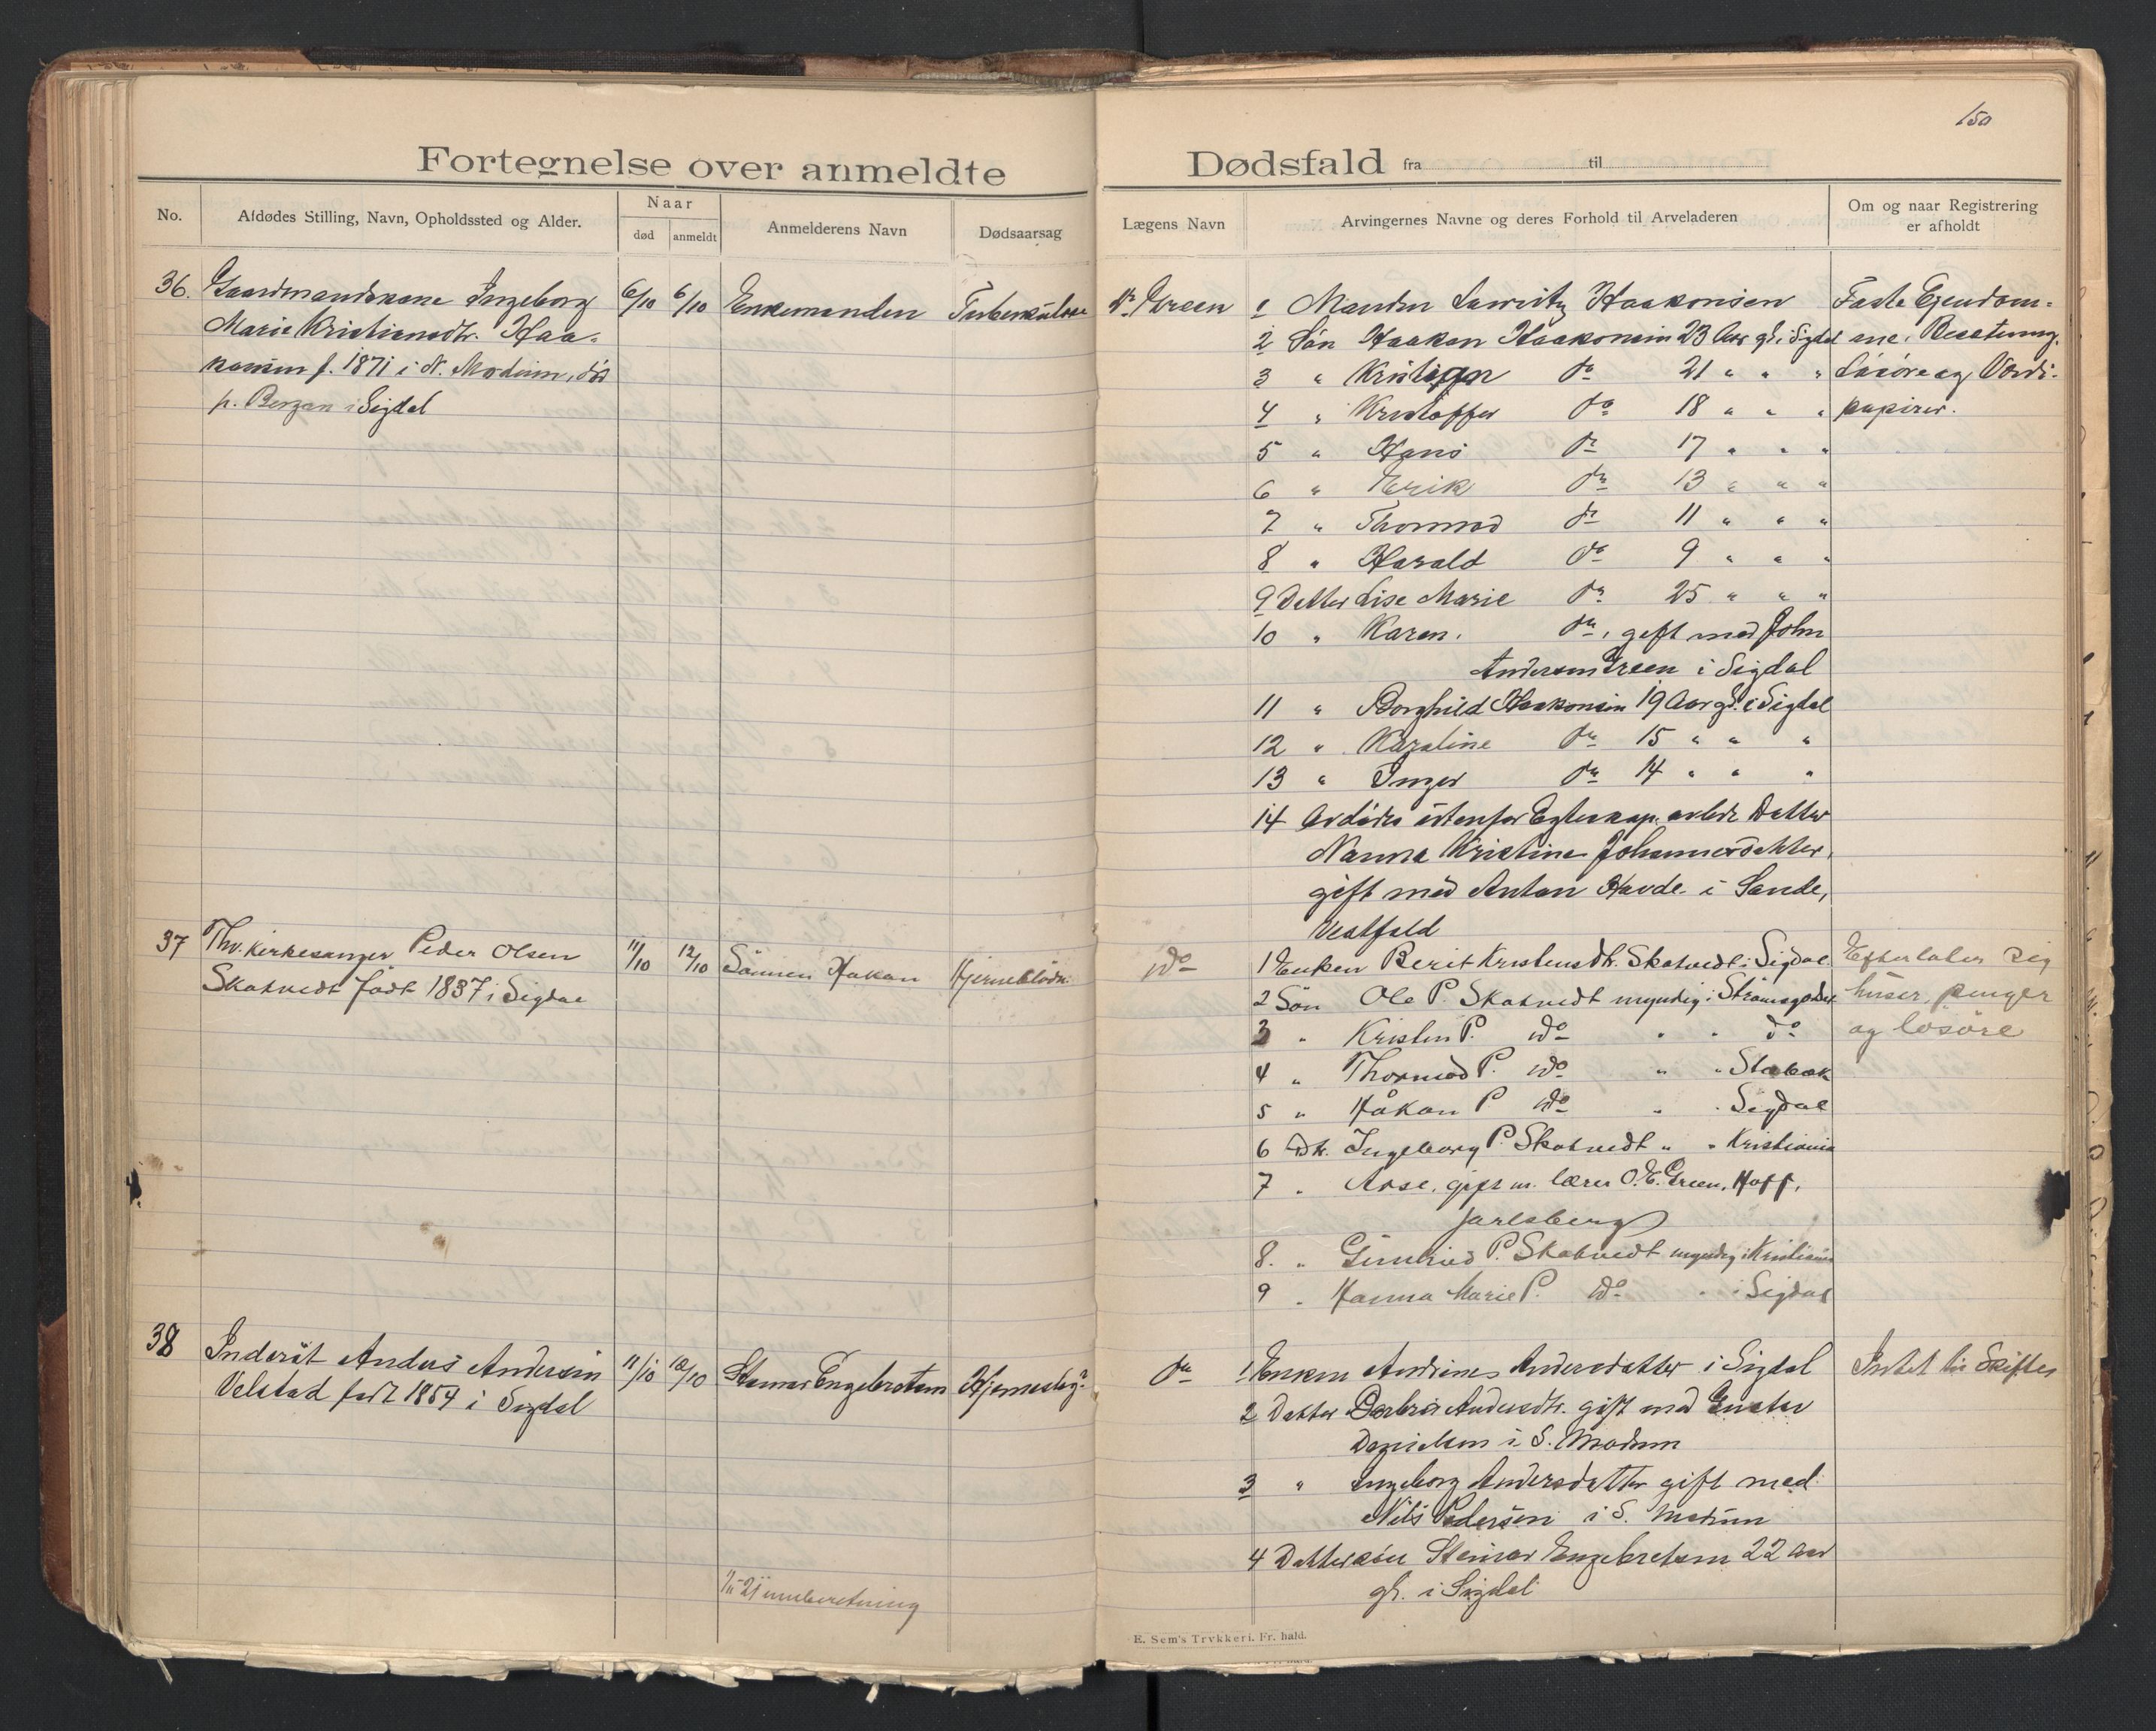 150
Fortegnelse over anmeldte Dødsfald fra til
No.
Afdødes Stilling, Navn, Opholdssted og Alder.
Naar
død
anmeldt
Anmelderens Navn
Dødsaarsag
Lægens Navn
Arvingernes Navne og deres Forhold til Arveladeren
Om og naar Registrering
er afholdt
36. Gaardmandskone Ingeborg
Marie Kristiansdtr. Haa-
konsen f. 1871 i N. Modum, død
p. Bergan i Sigdal
6/10 6/10 Enkemanden Tuberkulose
Dr. Green
1 Manden Lauritz Haakonsen
2 Søn Haakon Haakonsen 23 Aar gl. i Sigdal
3 " Kristian do 21 " " "
4 " Kristoffer do 18 " " "
5 " Hans do 17 " " "
6 " Erik do 13 " " "
7 " Thormod do 11 " " "
8 " Harald do 9 " " "
9 Datter Lise Marie do 25 " " "
10 " Karen. do, gift med John
Andersen Green i Sigdal
11 " Borghild Haakonsen 19 Aar gl. i Sigdal
12 " Karoline do 15 " " "
13 " Inger do 14 " " "
14 Avdødes utenfor Egteskap avlede Datter
Nanna Kristine Johannesdatter,
gift med Anton Havde i Sande,
Vestfold
Faste Ejendom-
me, Besetning,
Løsøre og Værdi-
papirer.
37 Fhv. Kirkesanger Peder Olsen
Skatvedt født 1837 i Sigdal
11/10 12/10 Sønnen Hakon Hjerneblødn.
do
1 Enken Berit Kristensdtr. Skatvedt i Sigdal
2 Søn Ole P. Skatvedt myndig i Strømsgodset
3 " Kristen P. do " " do
4 " Thormod P. do " " Stabæk
5 " Håkon P do " " Sigdal
6 Dtr. Ingeborg P. Skatvedt " " Kristiania
7 " Aase, gift m. lærer O. E. Green, Hoff,
Jarlsberg
8. " Gunhild P. Skatvedt myndig i Kristiania
9 " Hanna Marie P. do " i Sigdal
Efterlater sig
huser, penger
og løsøre
38 Inderst Anders Andersen
Velstad født 1854 i Sigdal
11/10 12/10 Steinar Engebretsen Hjerneslag
do
1 Enken Andrine Andersdatter i Sigdal
2 Datter Barbro Andersdtr. gift med Gustav
Danielsen i S. Modum
3 " Ingeborg Andersdatter gift med
Nils Pedersen i S. Modum
4 Dattersøn Steinar Engebretsen 22 Aar
gl. i Sigdal
Intet til Skifte
21 innberetning
E. Sem's Trykkeri. Fr. hald.